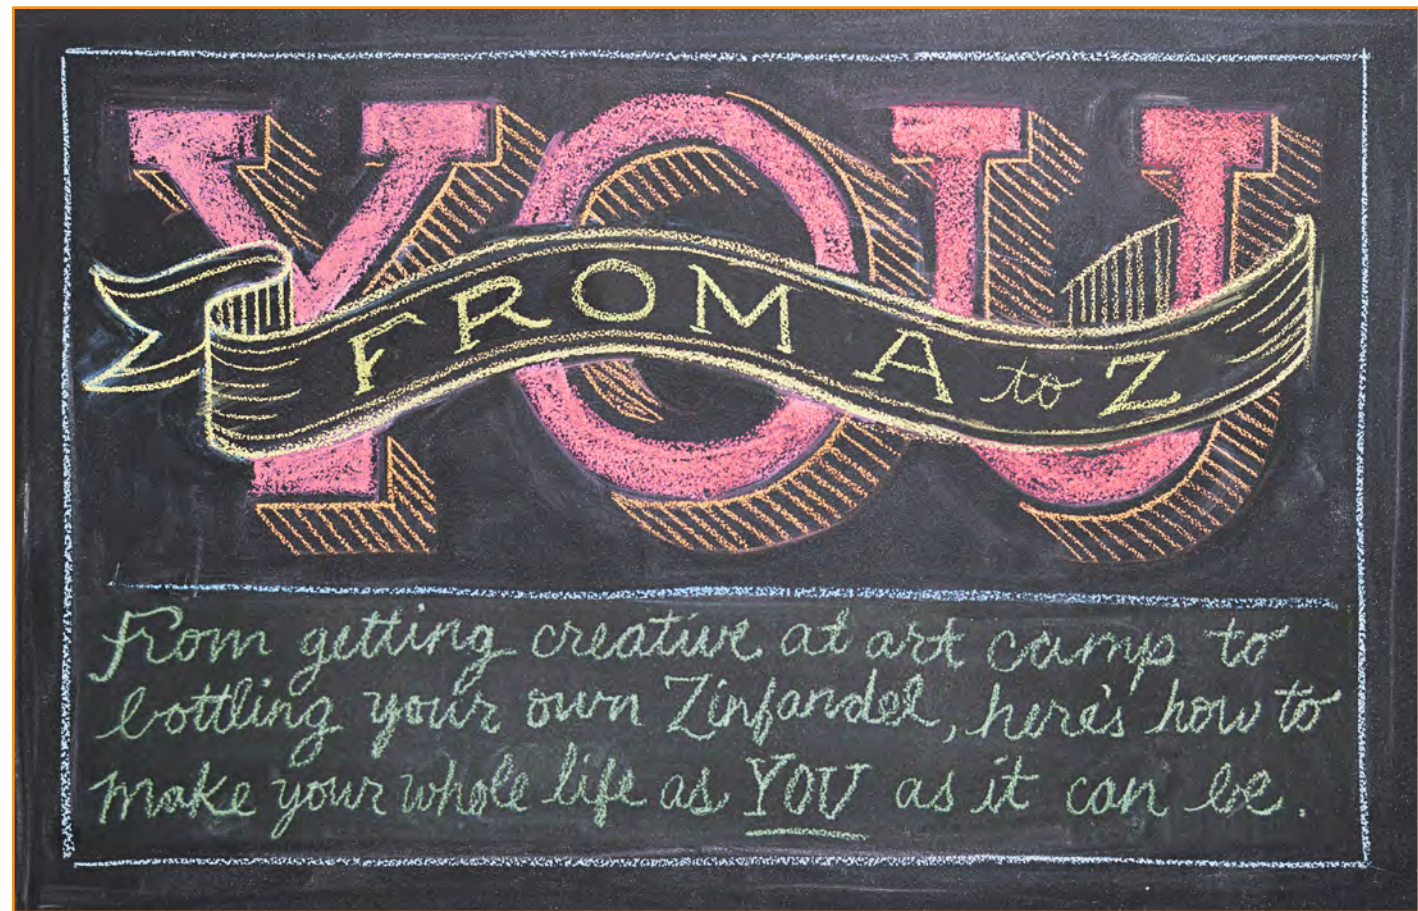 YOU
FROM A to Z
From getting creative at art camp to
bottling your own Zinfandel, here's how to
make your whole life as YOU as it can be.